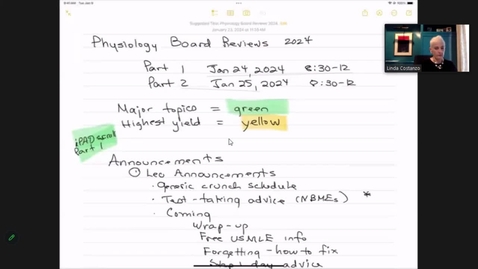 Physiology Board Reviews 2024
Part 1 Jan 24, 2024 8:30-12
Part 2 Jan 25, 2024 8:30-12
Major topics = green
Highest yield = yellow
iPAD scroll
Part 1
Announcements
Leo Announcements
crunch schedule
Test-taking advice (NBMEs) *
Coming
Wrap-up
Free USMLE info
Forgetting - how to fix
Step 1 day advice
Linda Costanzo